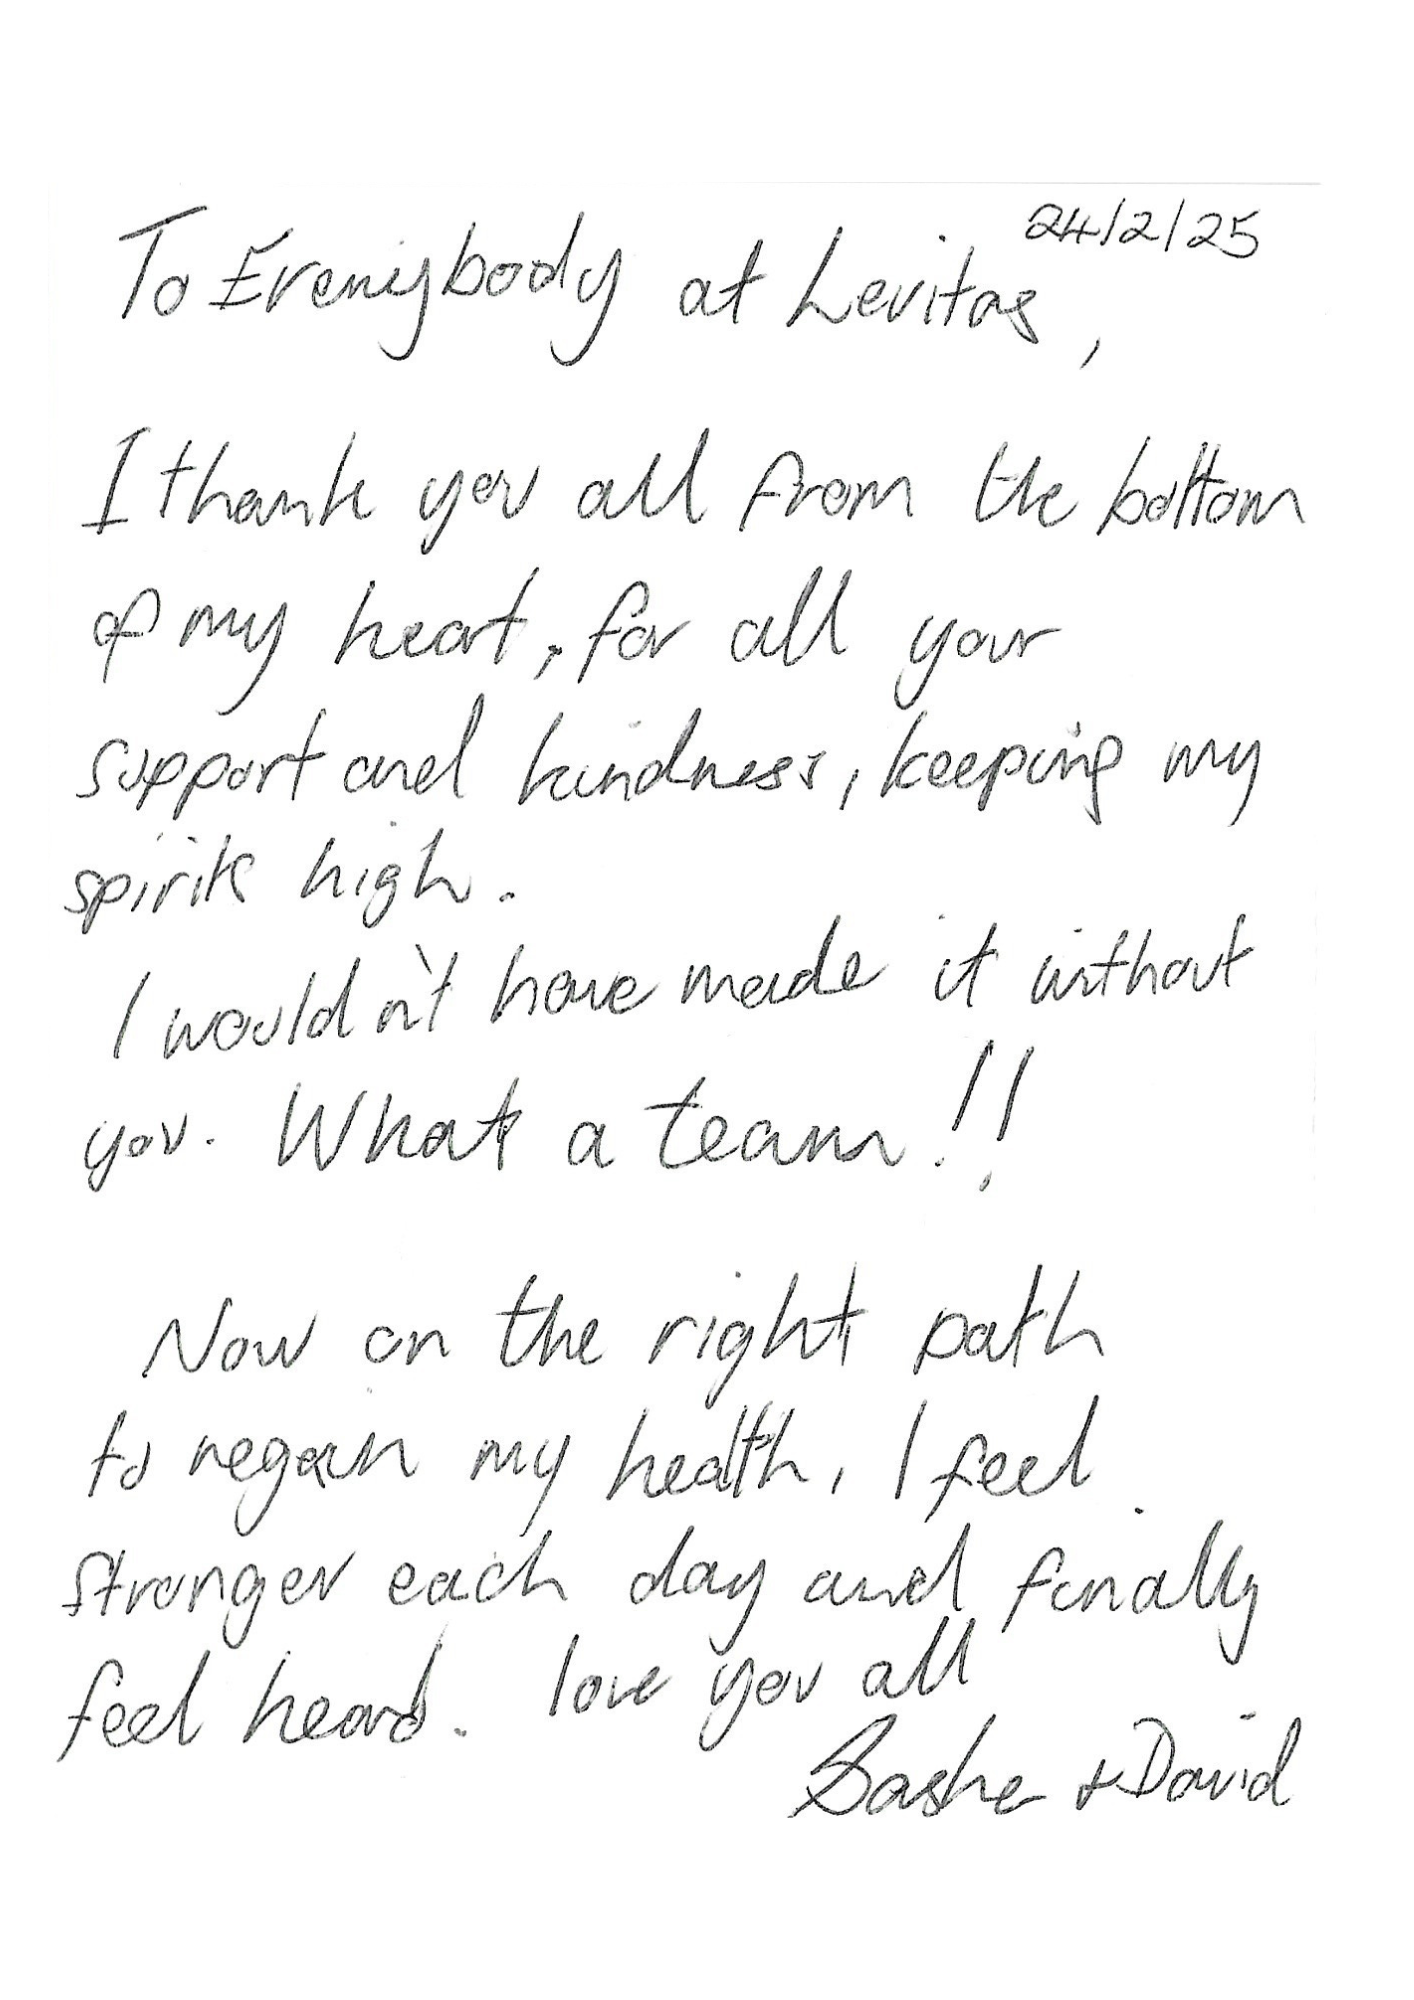 24/2/25
To Everybody at Levitas,
I thank you all from the bottom
of my heart, for all your
support and kindness, keeping my
spirits high.
I wouldn't have made it without
you. What a team!!
Now on the right path
to regain my health, I feel
stronger each day and finally
feel heard. love you all
Sasha + David